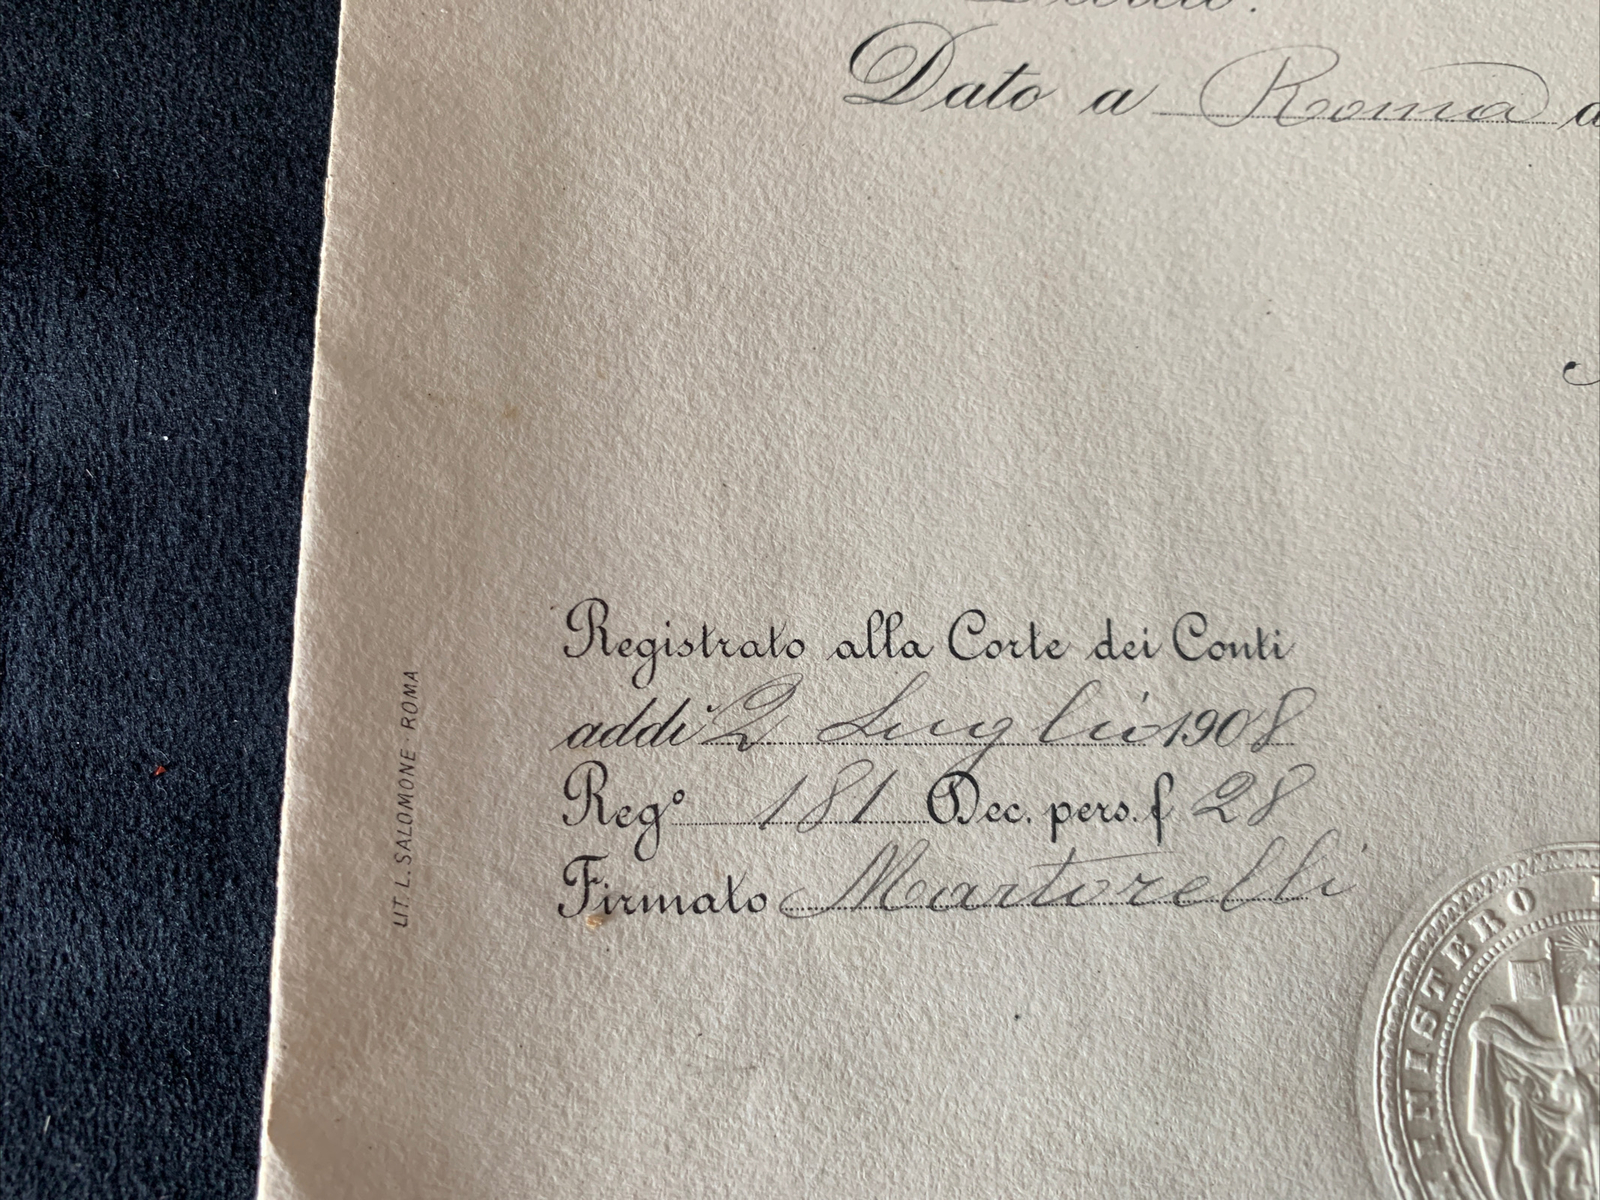 Dato a Roma
Registrato alla Corte dei Conti
addì 2 Luglio 1908
Reg° 181 Dec. pers. f 28
Firmato Martorelli
LIT. L. SALOMONE ROMA
MINISTERO